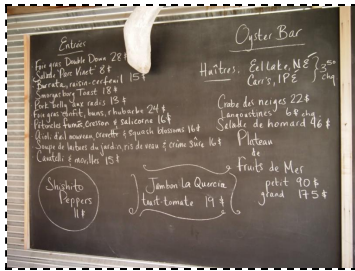 Entrées
Foie gras Double Down 28$
Salade "Pierre Vinet" 8$
Burrata, raisin-cerfeuil 15$
Smorgasburg Toast 18$
Pork belly aux radis 13$
Foie gras confit, buns, rhubarbe 24$
Pétoncles fumés, cresson & salicorne 16$
Ravioli, crevette & squash blossoms 16$
Soupe de laitue du jardin, ris de veau & crème sure 16$
Cavatelli & moules 15$
Shishito
Peppers
11$
Jambon La Quercia
tout-tomate 19$
Oyster Bar
Huîtres. Eel Lake, N.É
Carr's, IPÉ
3.50
chq
Crabe des neiges 22$
Langoustines 6$ chq
Salade de homard 46$
Plateau
de
Fruits de Mer
petit 90$
grand 175$